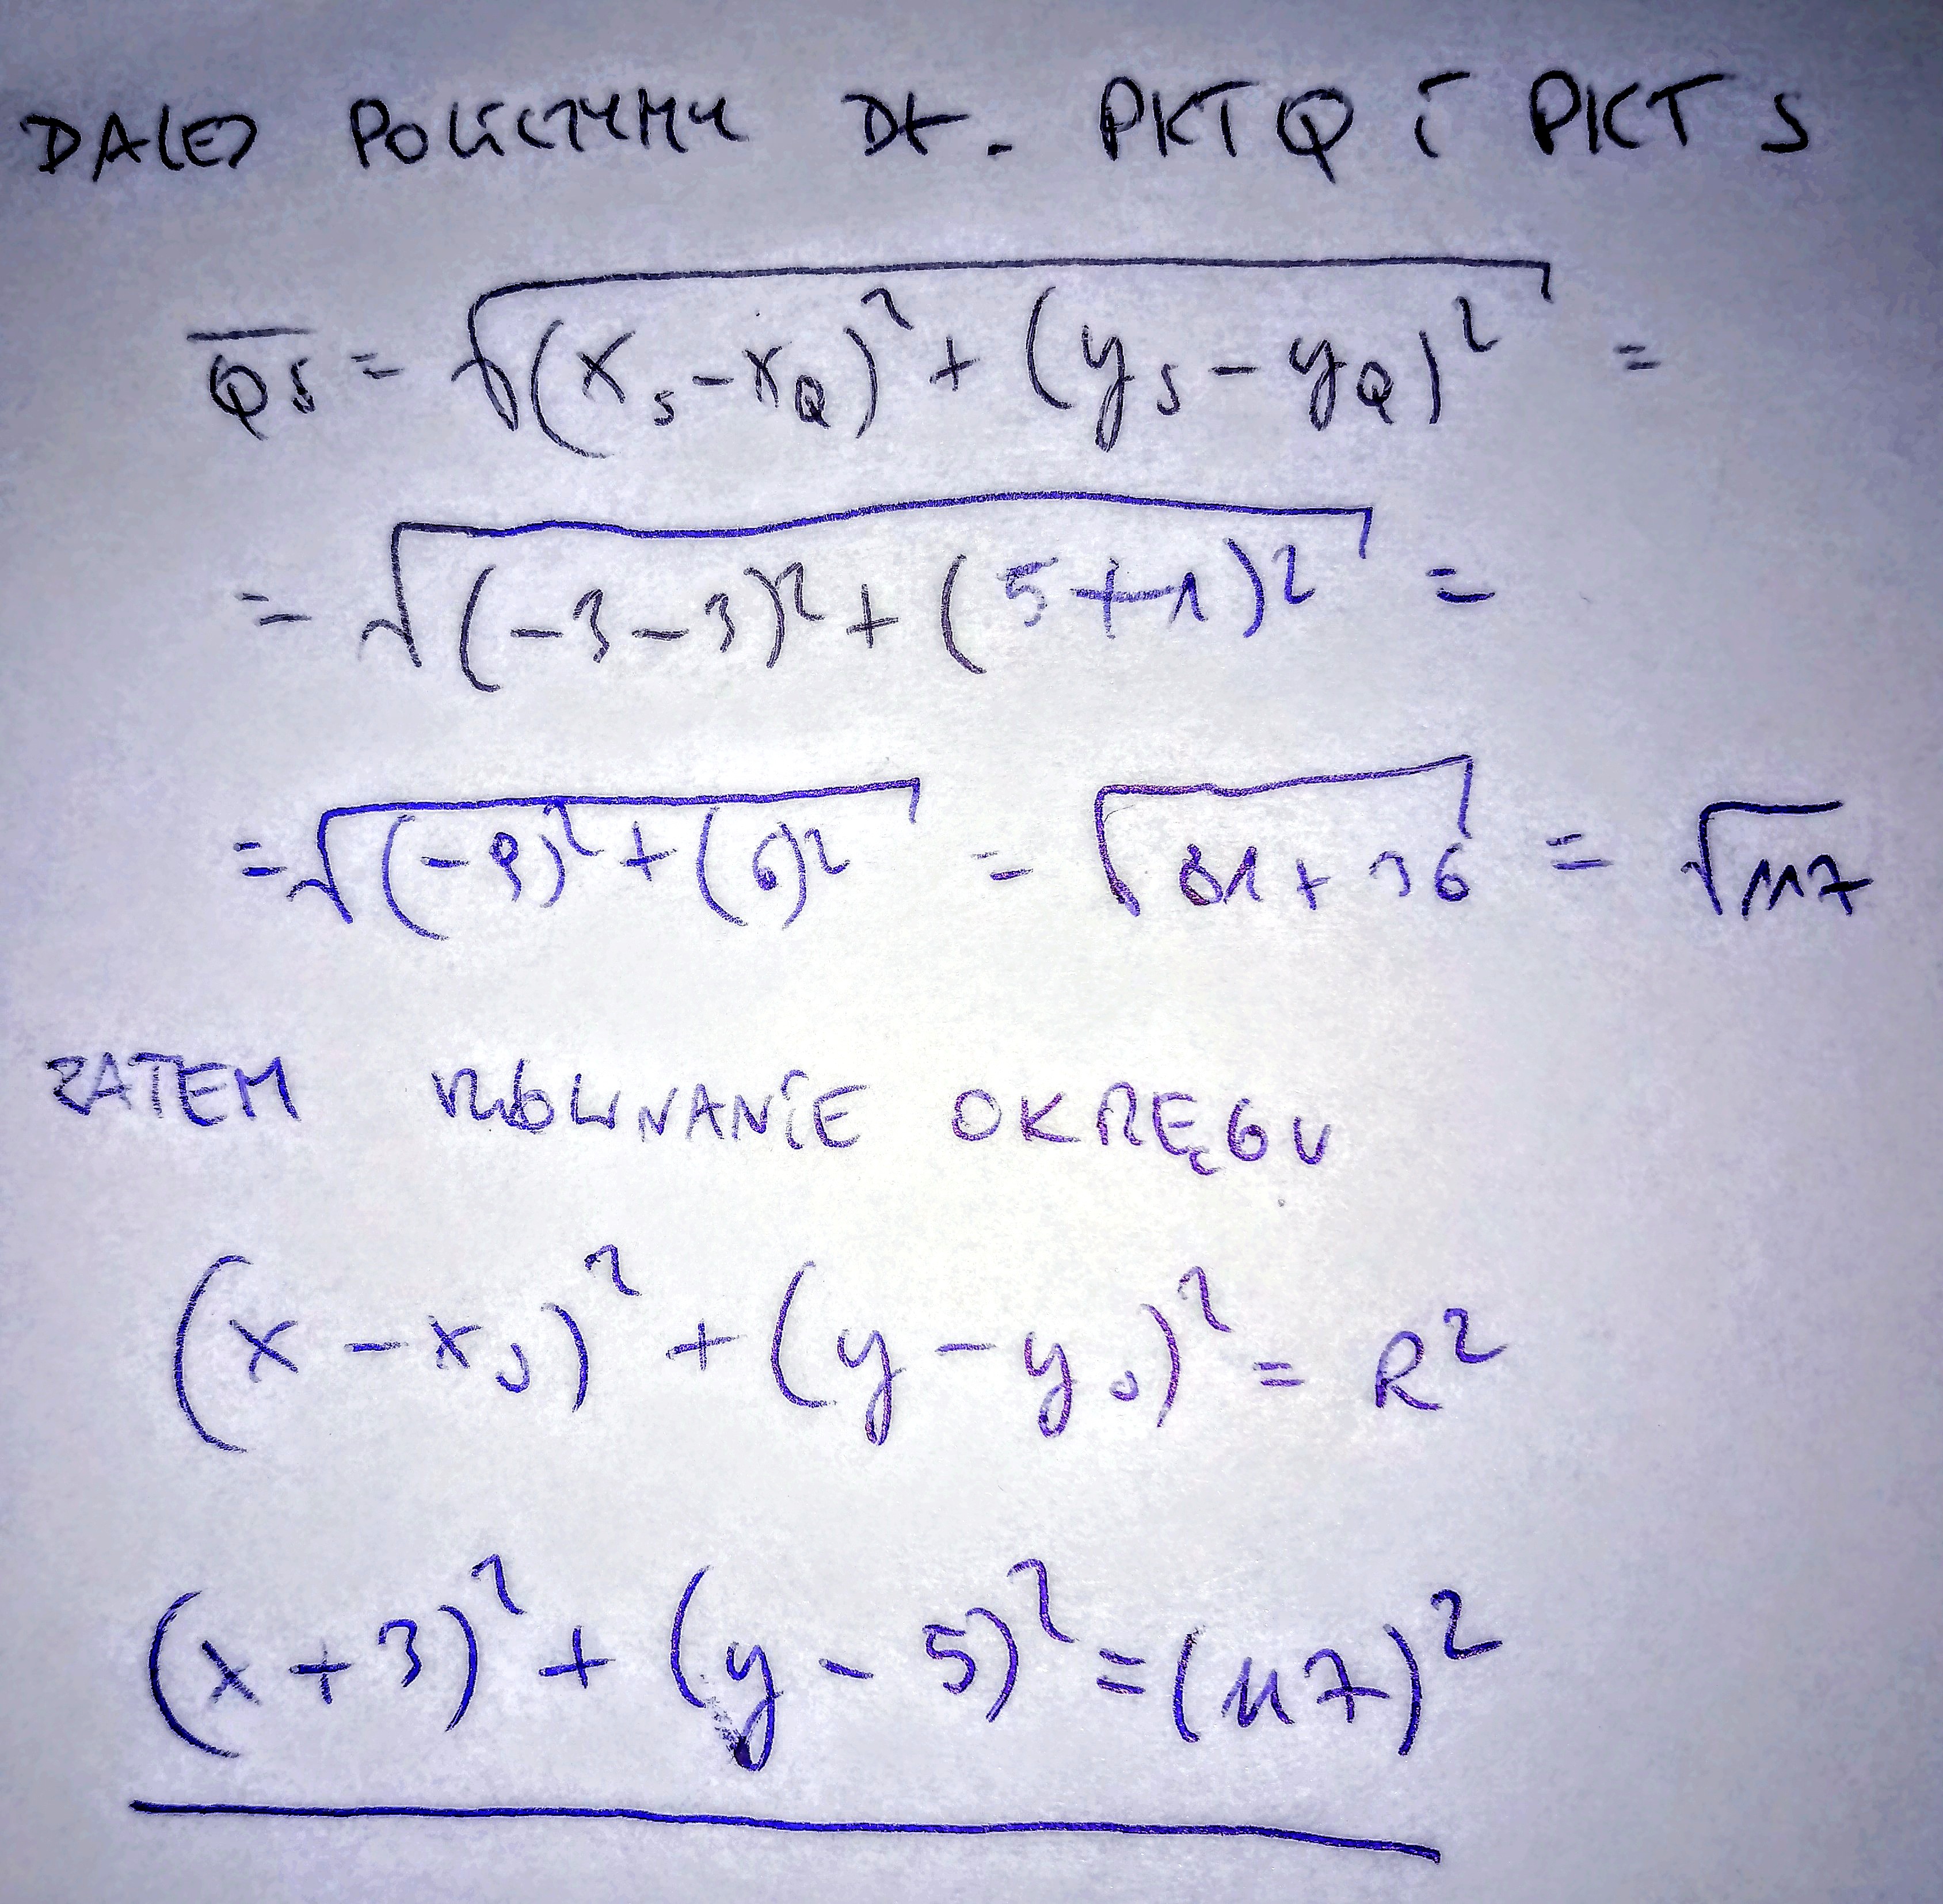 DALEJ POLICZYMY DŁ. PKT Q i PKT S
QS = √(x_s - x_Q)² + (y_s - y_Q)² =
= √(-3-3)² + (5+1)² =
= √(-9)² + (6)² = √81+36 = √117
ZATEM RÓWNANIE OKRĘGU
(x - x_s)² + (y - y_s)² = R²
(x + 3)² + (y - 5)² = (117)²